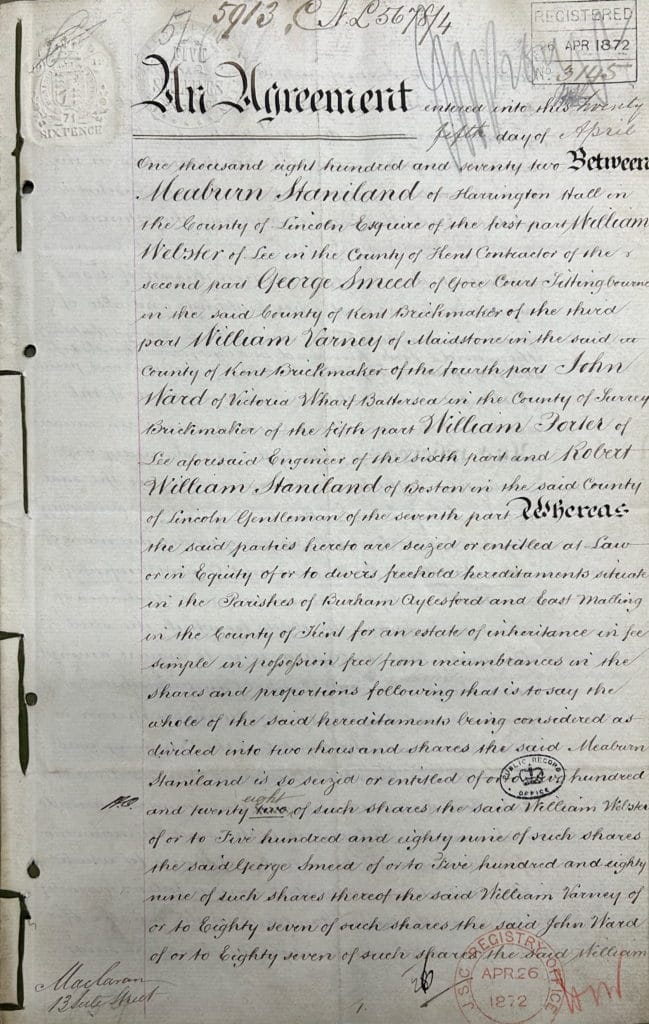 5913 C N L 5678/4
REGISTERED
APR 1872
No 3145
FIVE
SIXPENCE
An Agreement entered into this twenty
fifth day of April
One thousand eight hundred and seventy two Between
Meaburn Staniland of Harrington Hall in
the County of Lincoln Esquire of the first part William
Webster of Lee in the County of Kent Contractor of the
second part George Smeed of Gore Court Sittingbourne
in the said County of Kent Brickmaker of the third
part William Varney of Maidstone in the said
County of Kent Brickmaker of the fourth part John
Ward of Victoria Wharf Battersea in the County of Surrey
Brickmaker of the fifth part William Porter of
Lee aforesaid Engineer of the sixth part and Robert
William Staniland of Boston in the said County
of Lincoln Gentleman of the seventh part Whereas
the said parties hereto are seized or entitled at Law
or in Equity of or to divers freehold hereditaments situate
in the Parishes of Burham Aylesford and East Malling
in the County of Kent for an estate of inheritance in fee
simple in possession free from incumbrances in the
shares and proportions following that is to say the
whole of the said hereditaments being considered as
divided into two thousand shares the said Meaburn
Staniland is so seized or entitled of or to five hundred
PUBLIC RECORD OFFICE
eight
and twenty two of such shares the said William Webster
of or to Five hundred and eighty nine of such shares
the said George Smeed of or to Five hundred and eighty
nine of such shares thereof the said William Varney of
or to Eighty seven of such shares the said John Ward
of or to Eighty seven of such shares the said William
J.S.C. REGISTRY OFFICE
APR. 26
1872
1.